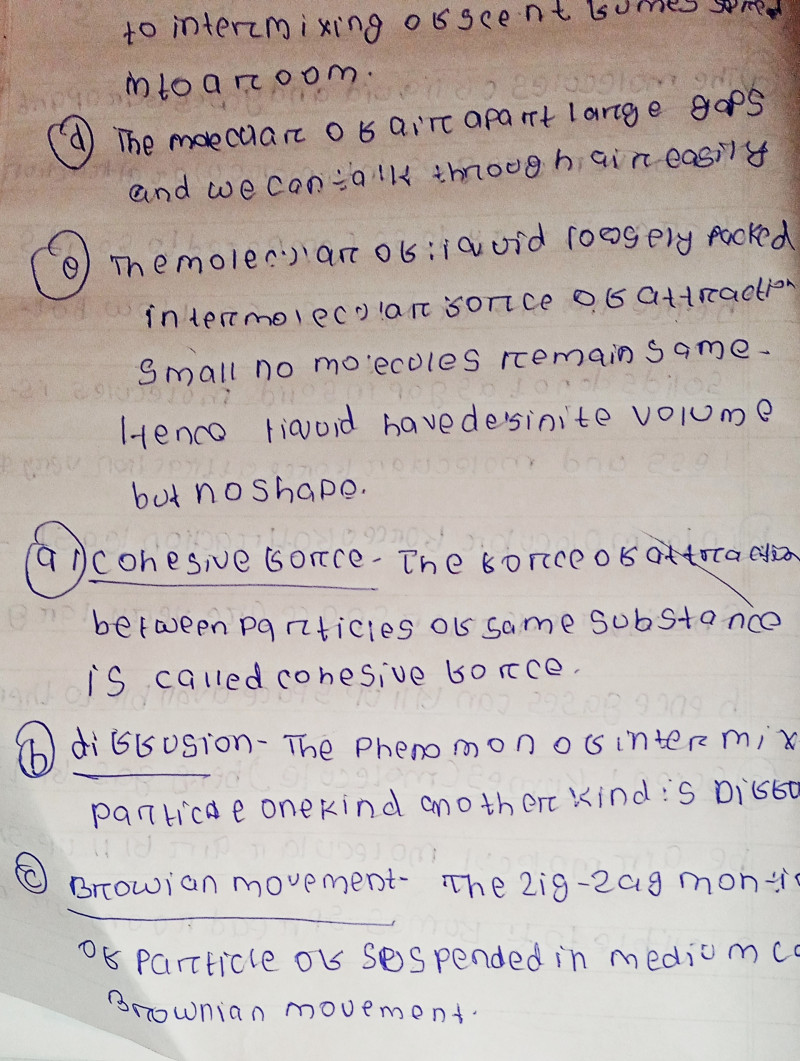 to intermixing of scent fumes spred
into a room.
(d) The moecular of air apart large gaps
and we can talk through air easily
(e) The molecular of liquid loosely packed
intermolecular force of attraction
small no molecules remain same-
Hence liquid have definite volume
but no shape.
(a) cohesive force- The force of attraction
between particles of same substance
is called cohesive force.
(b) diffusion- The phenomon of intermix
particle one kind another kind is Diffu
(c) Browian movement- The zig-zag montio
of particle of suspended in medium ca
Brownian movement.